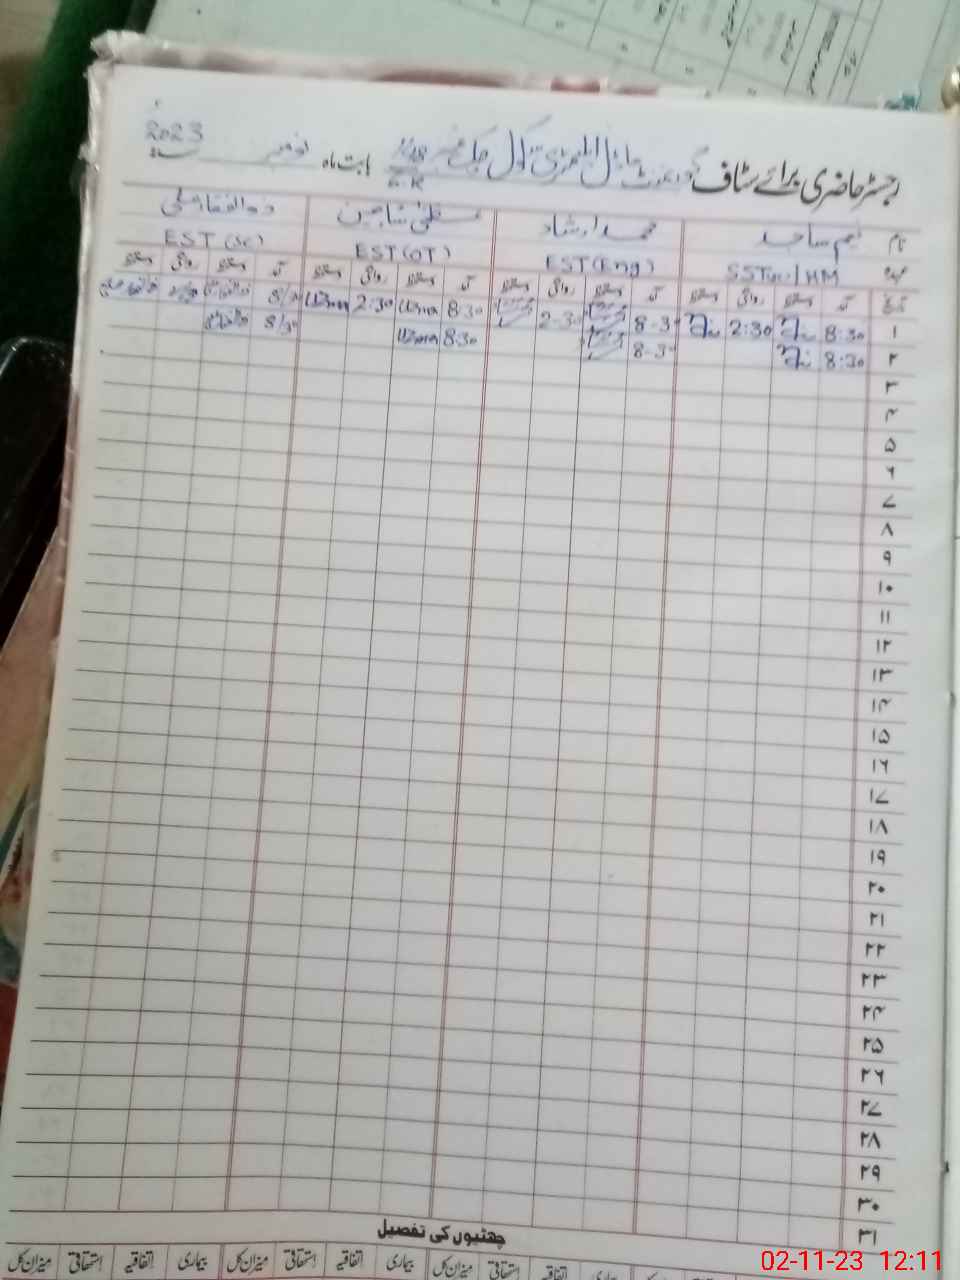 2023
رجسٹر حاضری برائے سٹاف گورنمنٹ ماڈل ایلیمنٹری سکول چک نمبر بابت ماہ نومبر
نام نعیم ساجد محمد ارشاد عظمیٰ شاہین ذوالفقار علی
عہدہ SST / HM EST (Eng) EST (OT) EST (SC)
تاریخ آمد دستخط روانگی دستخط آمد دستخط روانگی دستخط آمد دستخط روانگی دستخط آمد دستخط روانگی دستخط
۱ 8:30 2:30 8-30 2-30 8:30 2:30 8/30
۲ 8:30 8-30 8:30 8/30
۳
۴
۵
۶
۷
۸
۹
۱۰
۱۱
۱۲
۱۳
۱۴
۱۵
۱۶
۱۷
۱۸
۱۹
۲۰
۲۱
۲۲
۲۳
۲۴
۲۵
۲۶
۲۷
۲۸
۲۹
۳۰
۳۱
چھٹیوں کی تفصیل
بیماری اتفاقیہ استحقاقی میزان کل بیماری اتفاقیہ استحقاقی میزان کل بیماری اتفاقیہ استحقاقی میزان کل
02-11-23 12:11